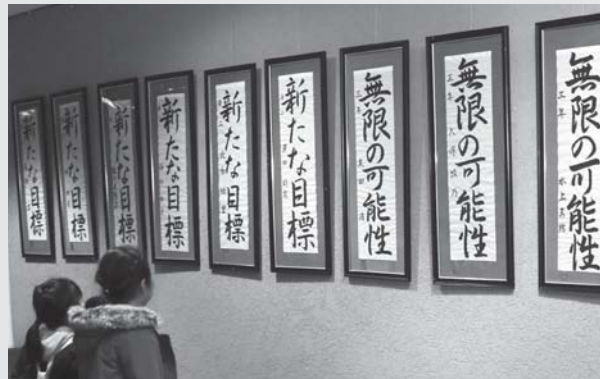 新たな目標
新たな目標
新たな目標
新たな目標
新たな目標
新たな目標
無限の可能性
三年
無限の可能性
三年
無限の可能性
三年